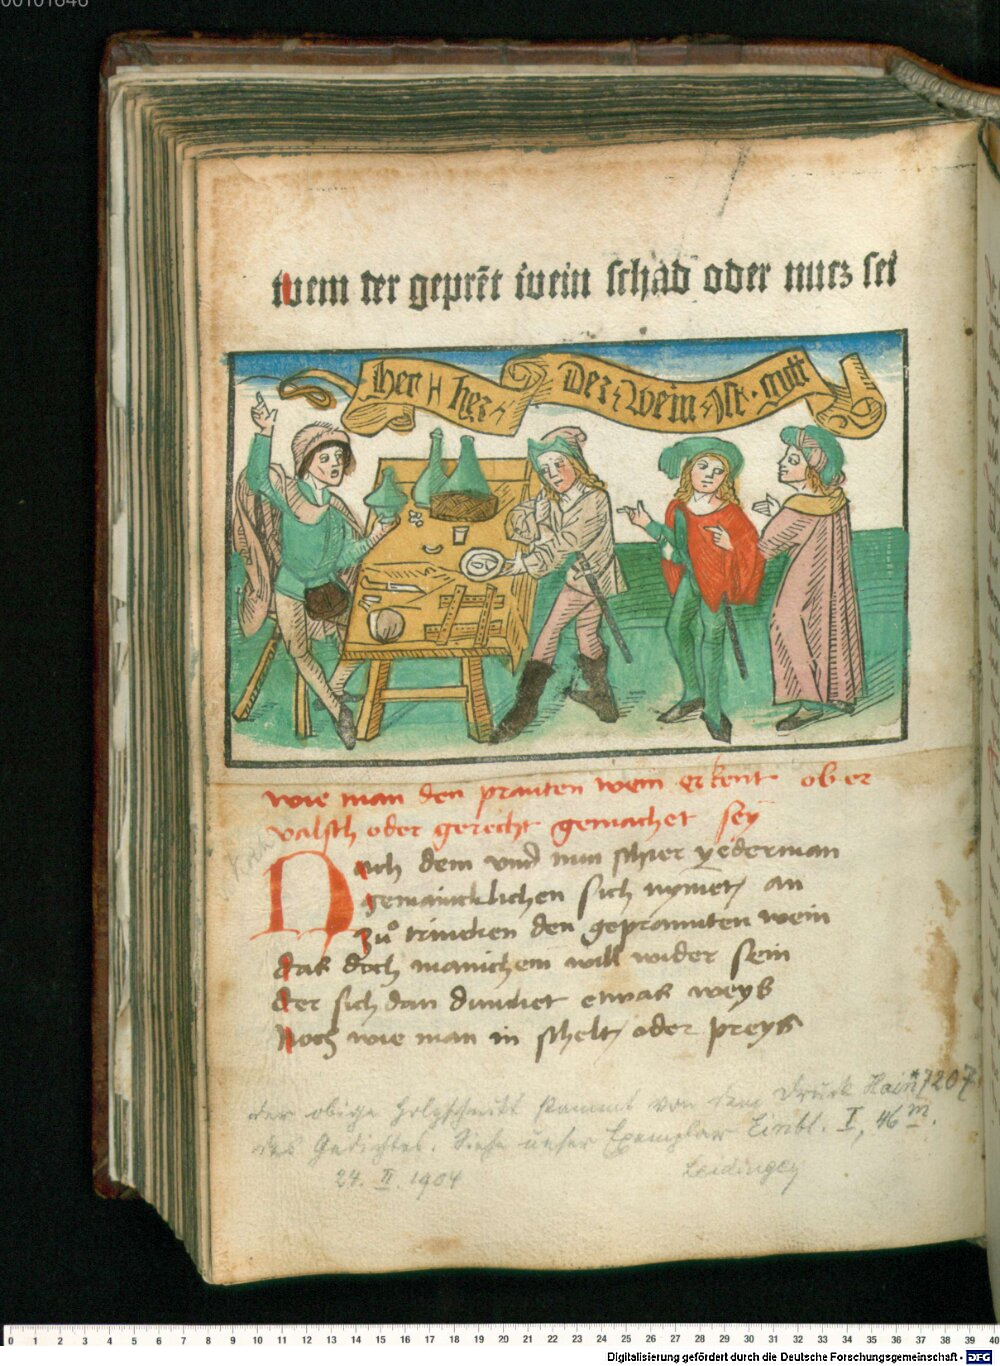 00101046
wem der geprēt wein schad oder nucz sei
her her Der wein Ist gutt
wie man den pranten wein erkent ob er
valsch oder gerecht gemachet sey
Nach dem und nun schier yederman
gemaincklichen sich nymet an
zuͦ trincken den gepranntten wein
das doch manichem will wider sein
der sich dan duncket etwas weys
Noch wie man in schelt oder preys
der obige Holzschnitt stammt von dem Druck Hain *7207
des Gedichtes. Siehe unser Exemplar Einbl. I, 46 m.
24. II. 1904 Leidinger
0 1 2 3 4 5 6 7 8 9 10 11 12 13 14 15 16 17 18 19 20 21 22 23 24 25 26 27 28 29 30 31 32 33 34 35 36 37 38 39 40
Digitalisierung gefördert durch die Deutsche Forschungsgemeinschaft - DFG